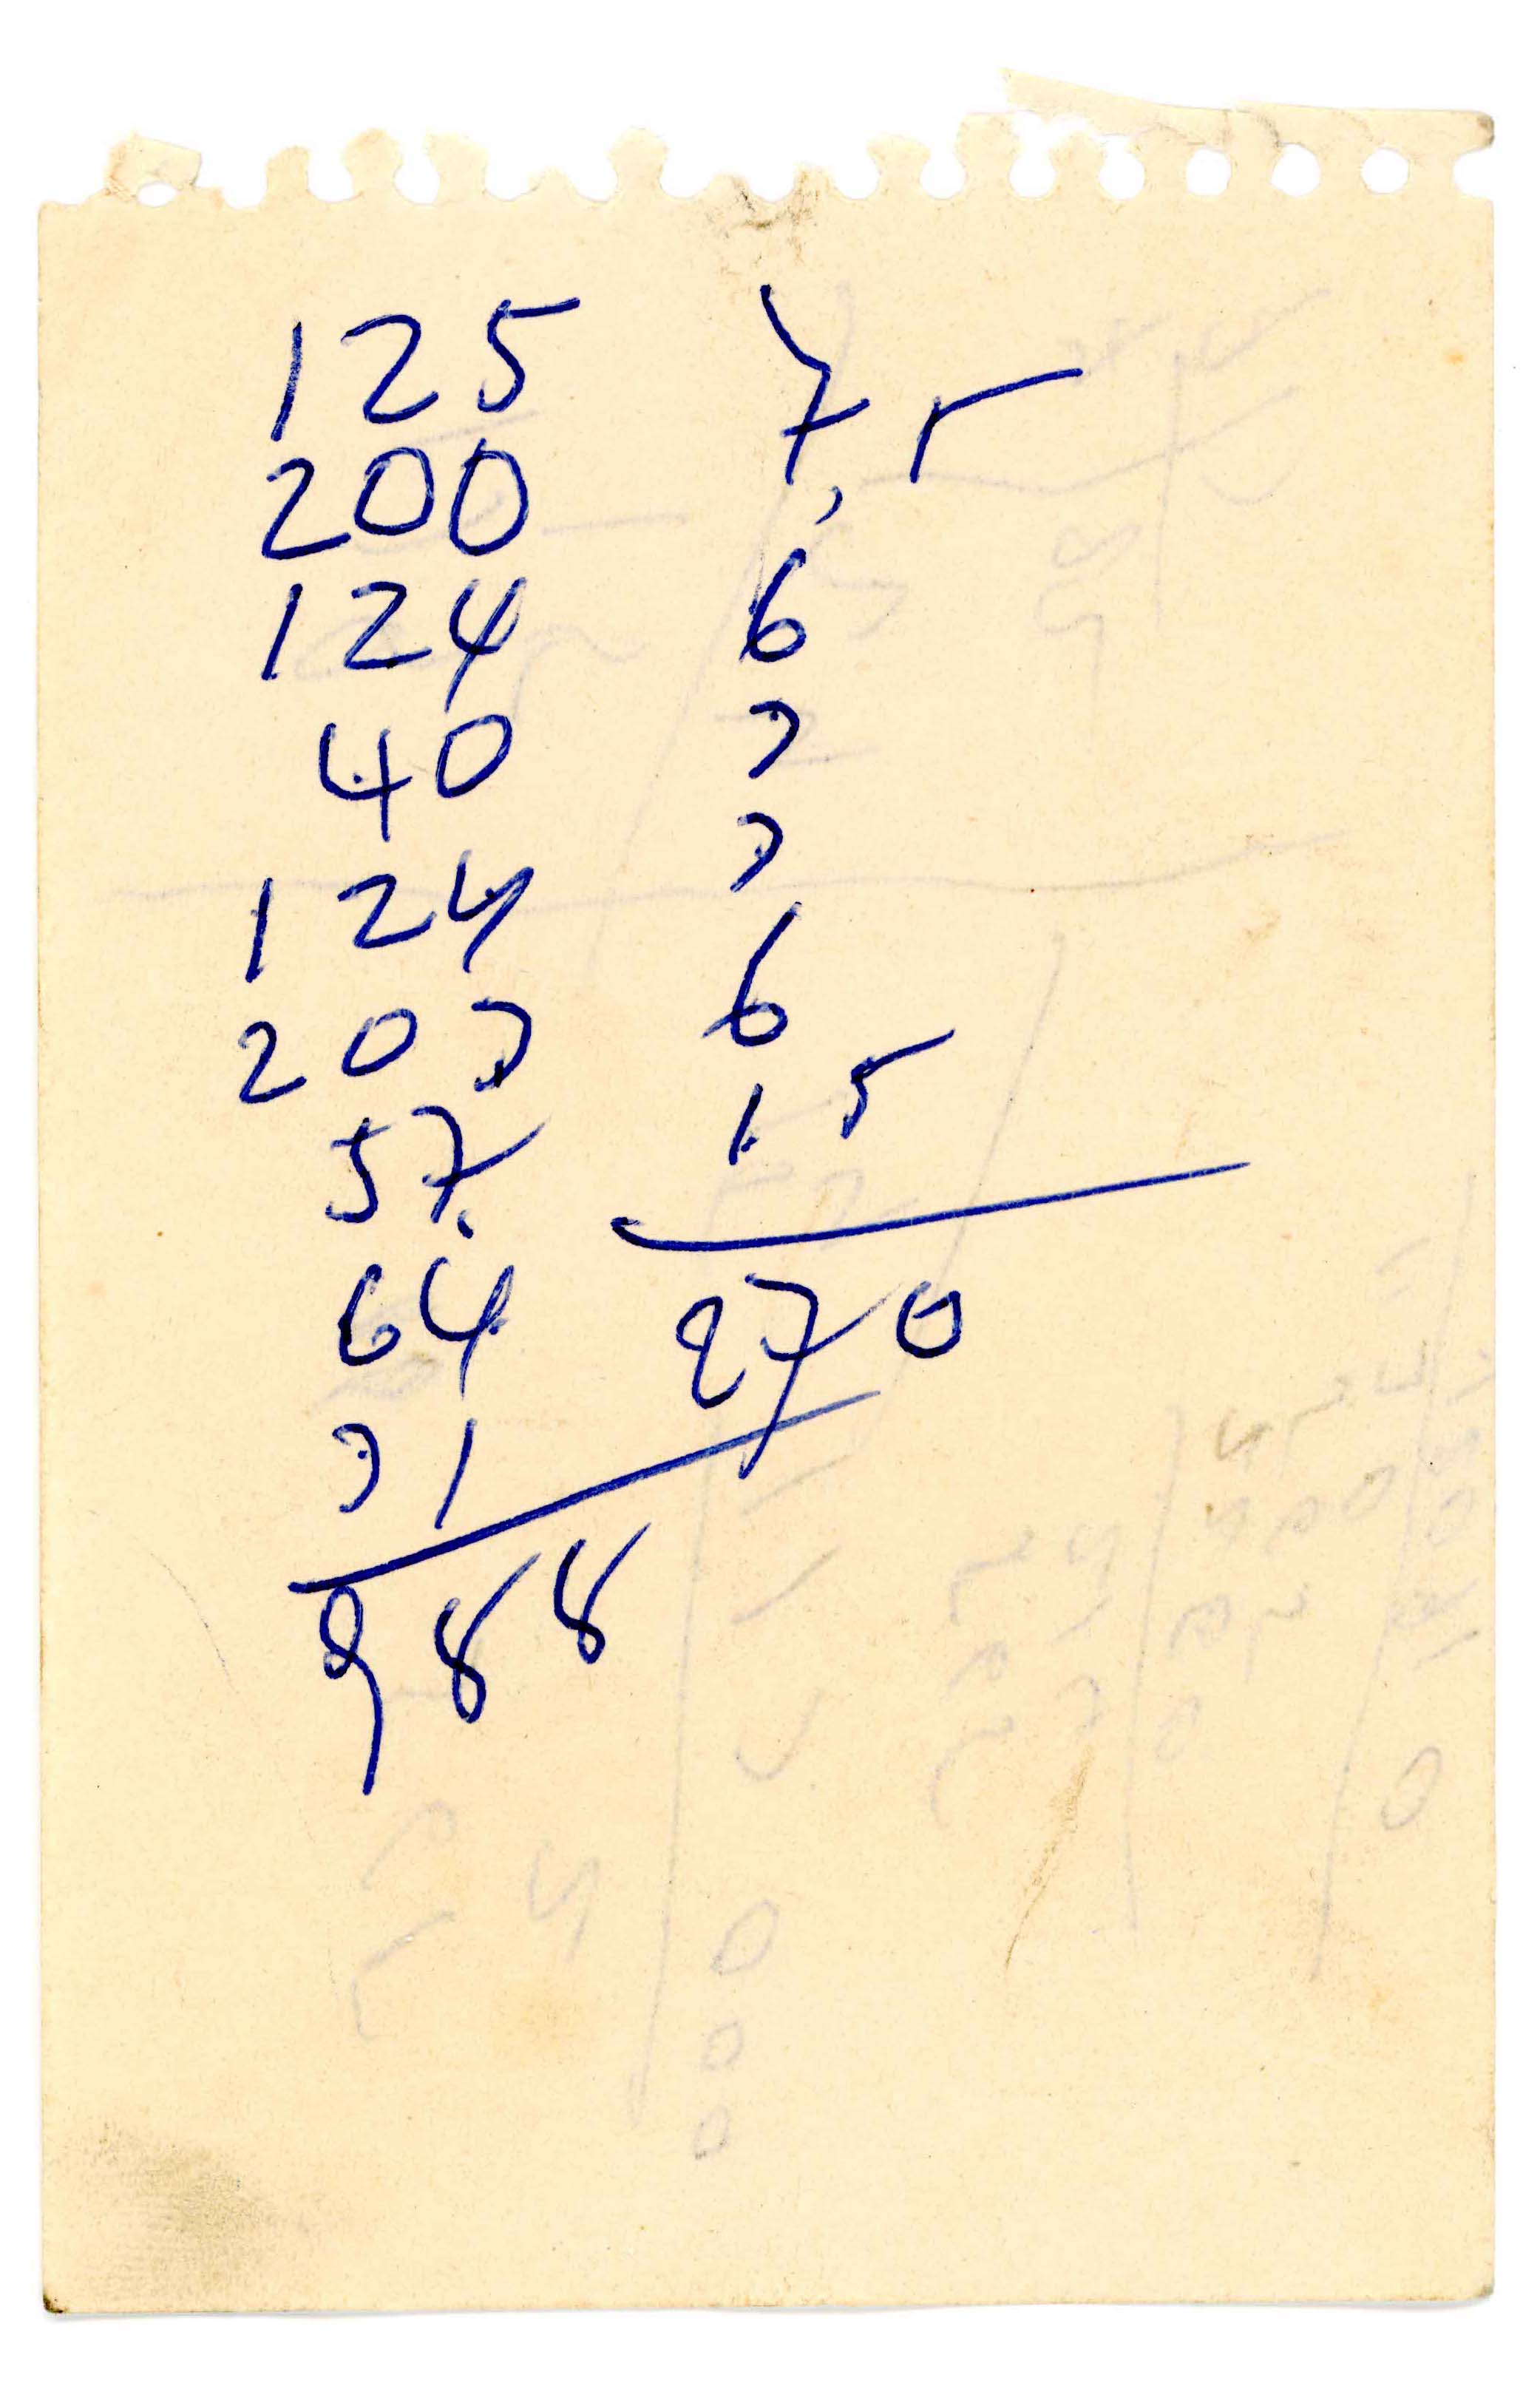 125
200
124
40
124
203
57
64
31
988
75
6
3
3
6
15
270